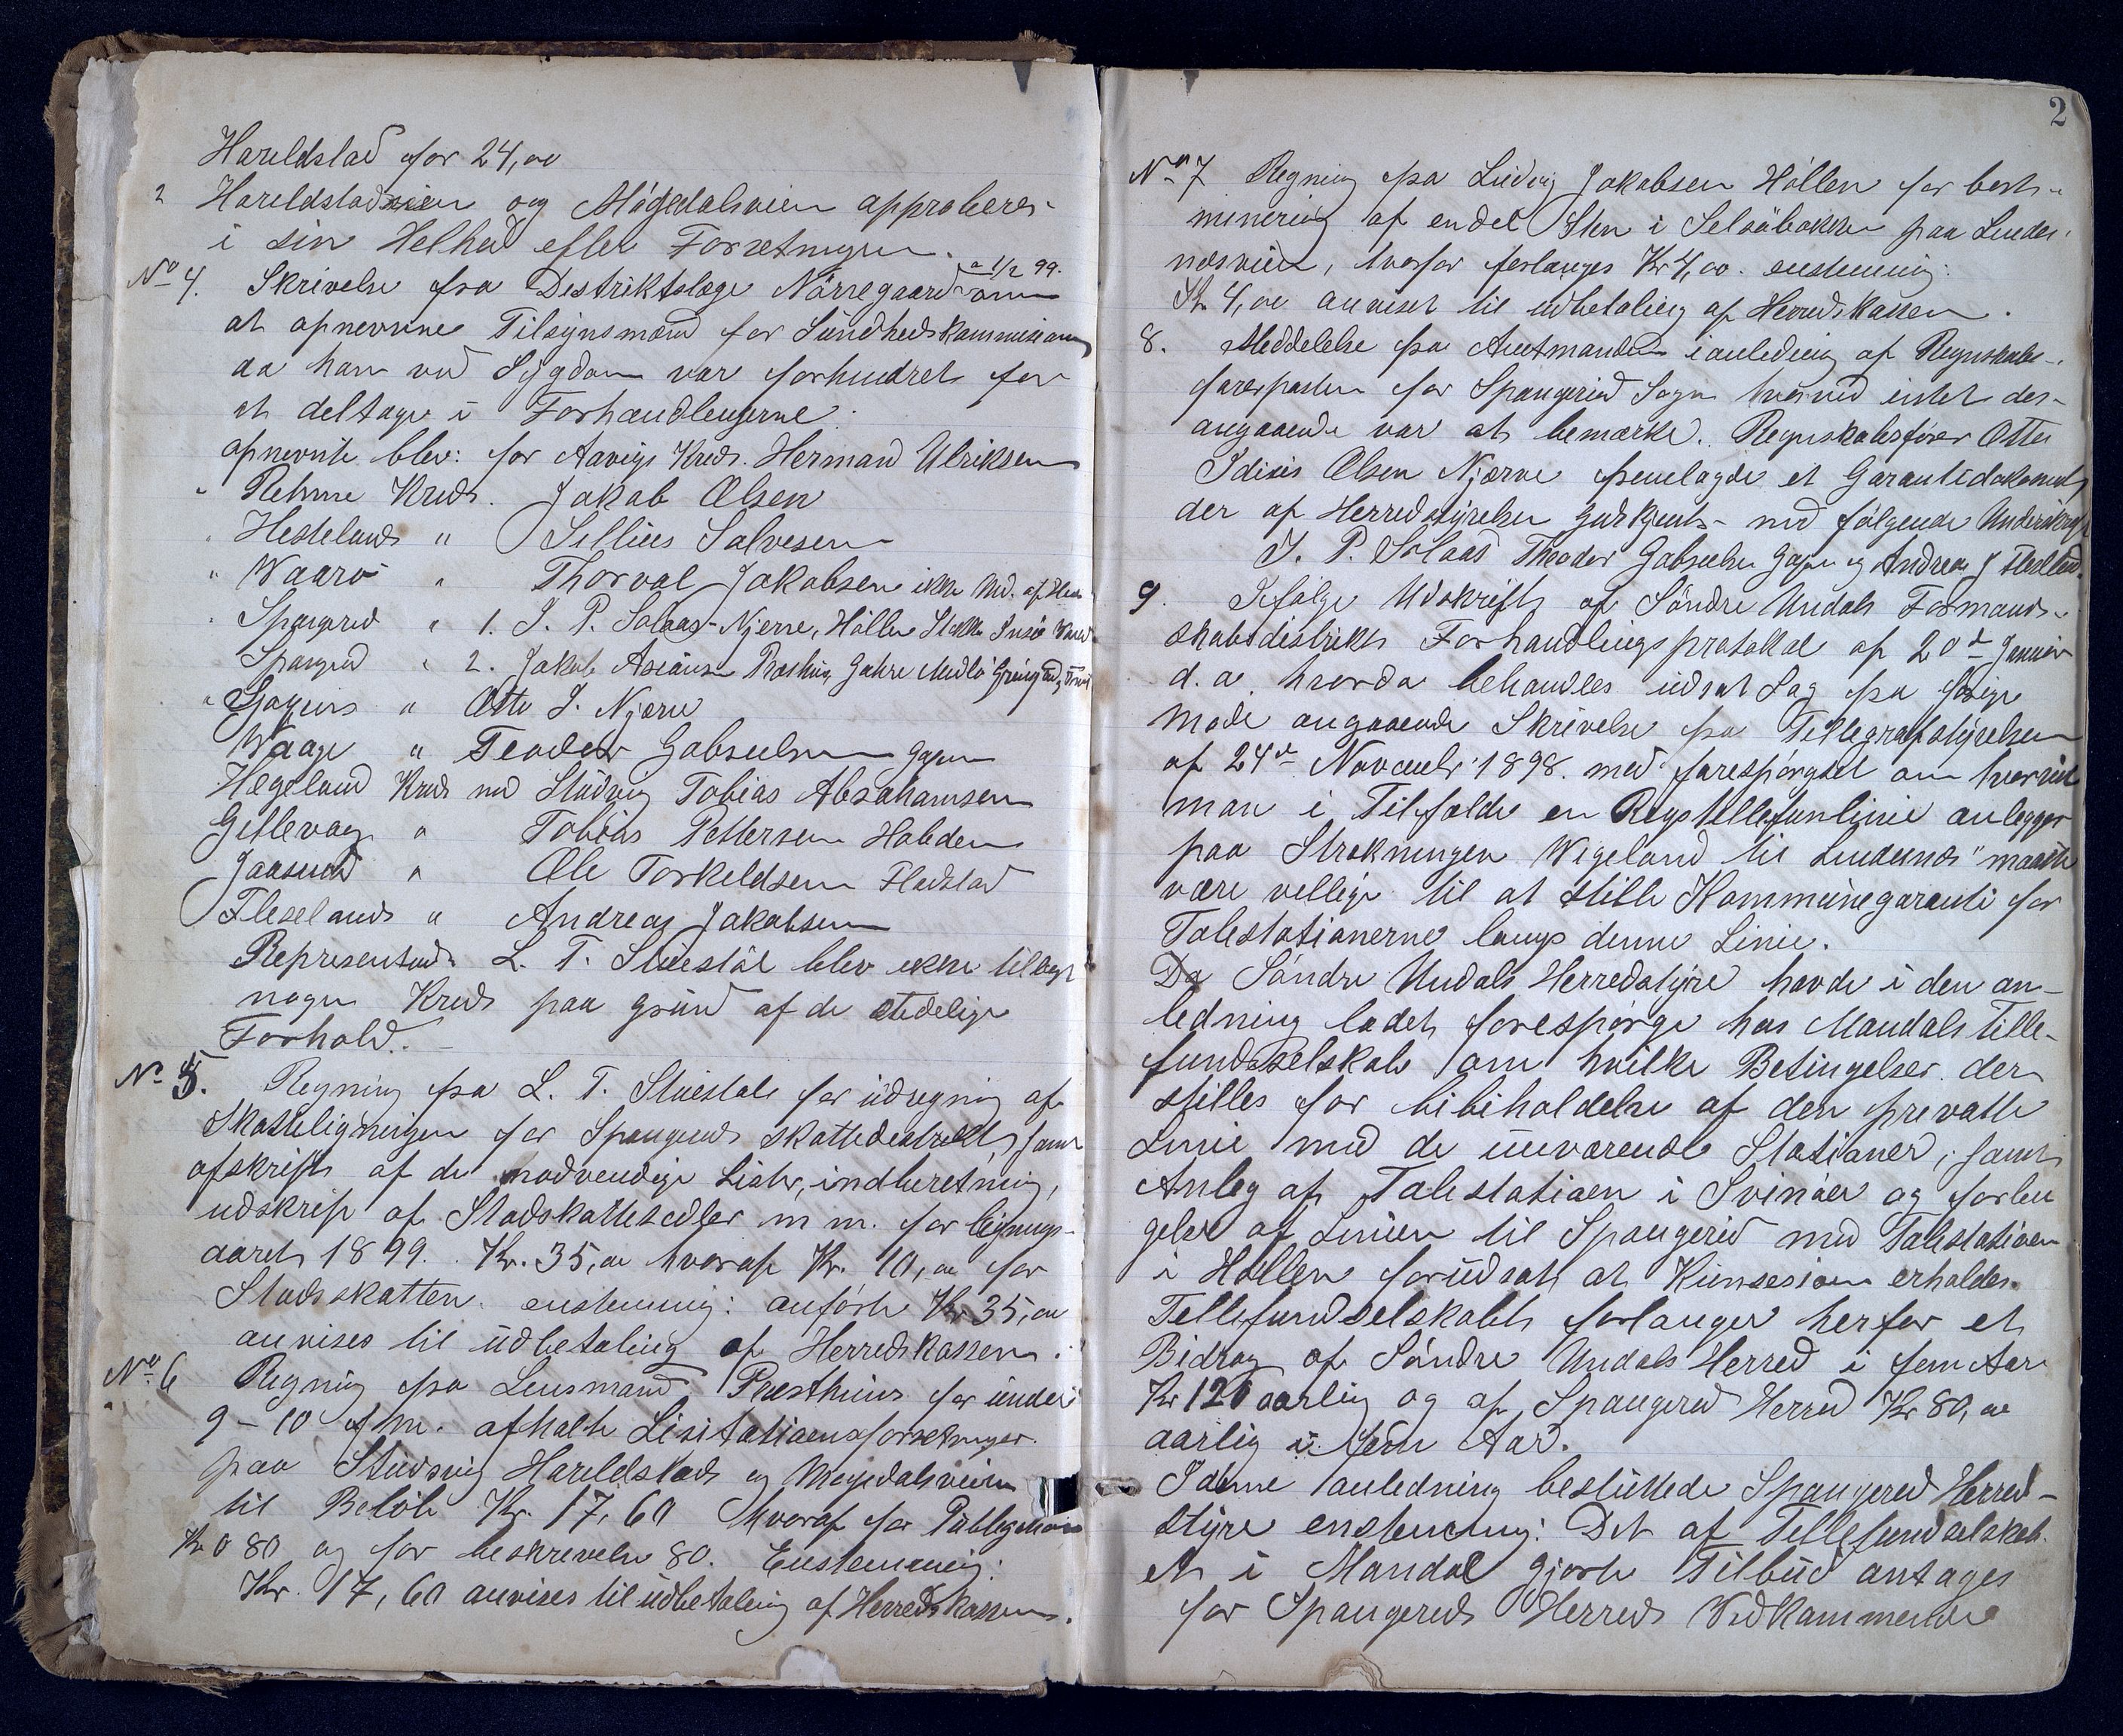 Hareldstad for 24,00
2 Hareldstadveien og Mögedalsveien approberes
i sin Helhed efter Forretningen.
No 4. Skrivelse fra Destriktslæge Nörregaard a 1/2 99. om
at opnevnne Tilsynsmænd for Sundhedskommisionen
da han ved Sygdom var forhindret for
at deltage i Forhandlingerne.
opnevnte blev: for Aavigs Kreds. Herman Ulriksen
" Rehme Kreds. Jakob Olsen
" Hestelands " Sellius Salvesen
" Waarö " Thorval Jakobsen ikke Md. af
" Spangred " 1. J. P. Solaas Njerve, Höllen Stokke
Spangred " 2. Jakob Præsthus Gahre
" Gjaguis " Otto J. Njærve
Waage " Teodor Gabrielsen
Hægeland Kreds med Studsvig Tobias Abrahamsen
Gitlevaag " Tobias Pettersen
Jaasund " Ole Torkeldsen
Fleselands " Andreas Jakobsen
Represantand L. T. Stuestöl blev ikke tillagt
nogen Kreds paa grund af de stedelige
Forhold.
No 5. Regning fra L. T. Stuestöl for udregning af
Skatteligningen for Spangreids skattedestrekt, samt
afskrift af de nødvendige Lister, indberetning,
udskrift af Stadskattesedler m m. for lignings-
aaret 1899. Kr. 35,00 hvoraf Kr. 10,00 for
Stadsskatten. enstemmig: anförte Kr 35,00
anvises til udbetaling af Herredskassen.
No 6 Regning fra Lensmand Præsthus for under
9-10 f.m. afholte Lisitationsforretninger
paa Studsvig Hareldstads og Mögedalsveien
til Belöb Kr. 17,60 hvoraf for
Kr 0 80 og for beskrevelse 80. Enstemmig:
Kr. 17,60 anvises til udbetaling af Herredskassen.
2
No 7 Regning fra Ludvig Jakobsen Höllen for bort-
minering af endel Sten i Selöbakken paa Lindes-
nesveien, hvorfor forlanges Kr 4,00. enstemmig:
Kr 4,00 anvist til udbetaling af Herredskassen.
8. Meddelelse fra Amtmanden i anledning af Regnskabs-
for Spangerid Sogn hvorved intet des-
angaaende var at bemærke. Regnskabsfører Otto
Olsen Njærve fremlagde et Garantidokument
der af Herredstyrelsen Godkjents med følgende Underskrift
J. P. Solaas Theodor Gabrielsen og Andreas J
9. Ifølge Udskrift af Söndre Undals Formands-
skabsdistrikts Forhandlingsprotokol af 20de Januar
d. a. hvorda behandles udsat Sag fra forige
møde angaaende Skrivelse fra Tellegrafstyrelsen
af 24de Novembr 1898. med forespørgsel om hvorvidt
man i Tilfælde en Rigstellefonlinie anlegges
paa Strekningen Vigeland til Lindesnes" maatte
være vellige til at stille Kommunegaranti for
Talestationerne langs denne Linie.
Da Söndre Undals Herredstyre havde i den an-
ledning ladet forespörge hos Mandals Telle-
fundselskab om hvilke Betingelser der
stilles for bibiholdelse af den private
Linie med de nuværende Stationer, samt
Anleg af Talestation i Svinöer og forlen
gelse af Linien til Spangerid med Talestation
i Höllen forudsat at Kunsesion erholdes.
Tellefundselskabet forlanger herfor et
Bidrag af Söndre Undals Herred i fem Aar
Kr 120 aarlig og af Spangered Herred Kr 80,00
aarlig i fem Aar.
I denne anledning besluttede Spangered Herred-
styre enstemmig: Det af Tellefundselskab-
et i Mandal gjorte Tilbud antages
for Spangereds Herreds Vedkommende